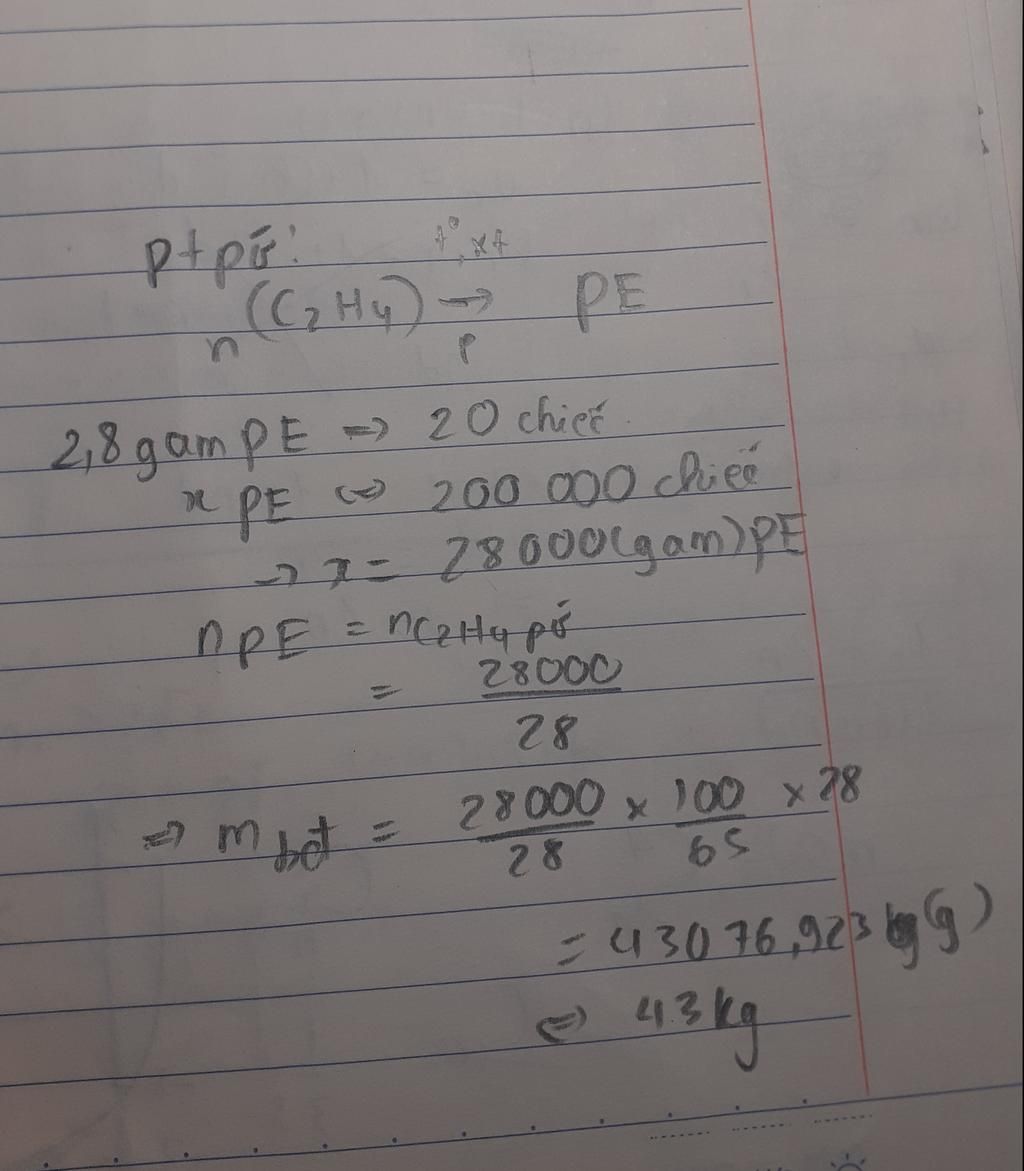 ptpứ:
t°, xt
n(C2H4) → PE
P
2,8gam PE => 20 chiếc
x PE <=> 200 000 chiếc
→ x = 28000(gam)PE
nPE = nC2H4 pứ
= 28000/28
=> m bột = 28000/28 x 100/65 x 28
= 43076,923 (g)
<=> 43kg